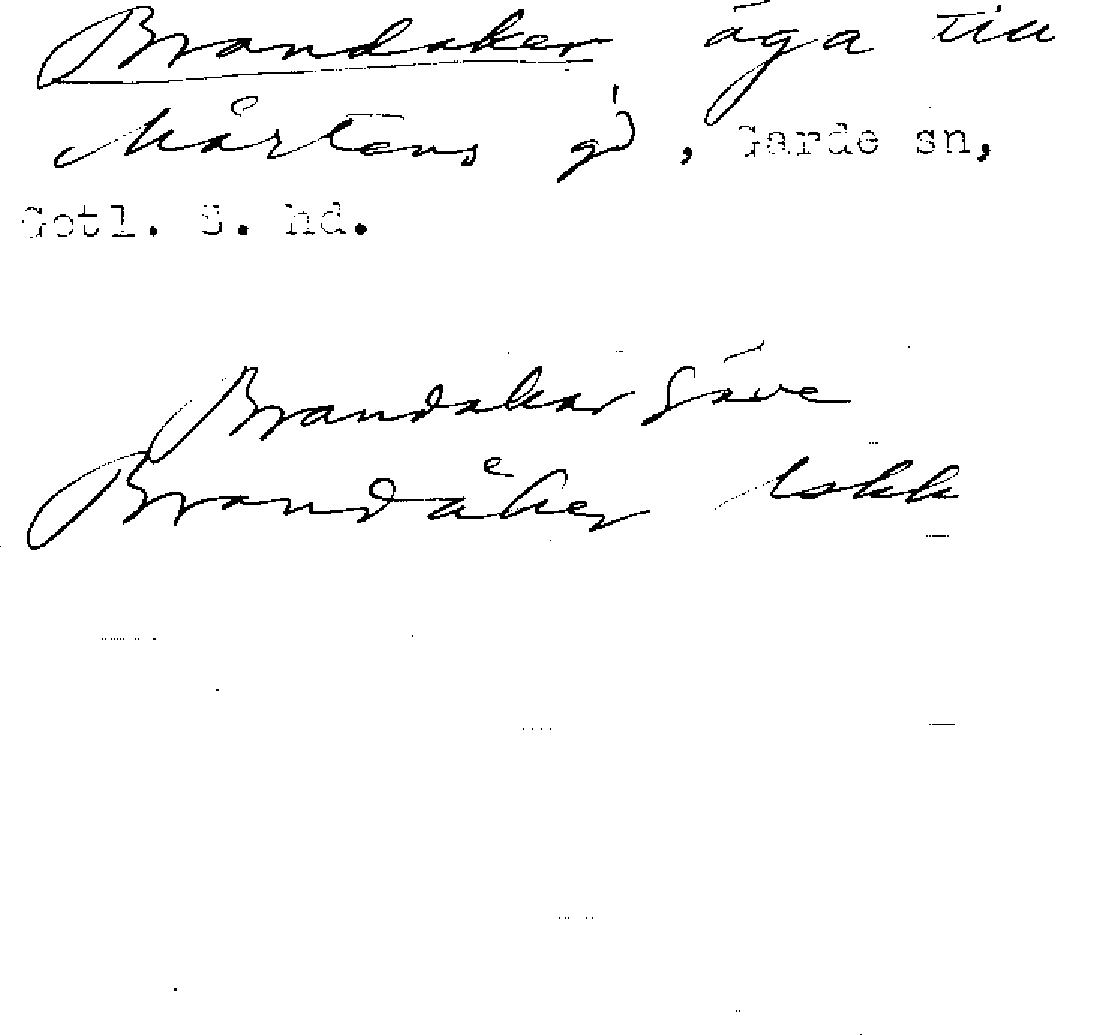 Brandaker äga till
Mårtens gd, Garde sn,
Gotl. S. hd.
Brandakar Säve
Brandåker lskk